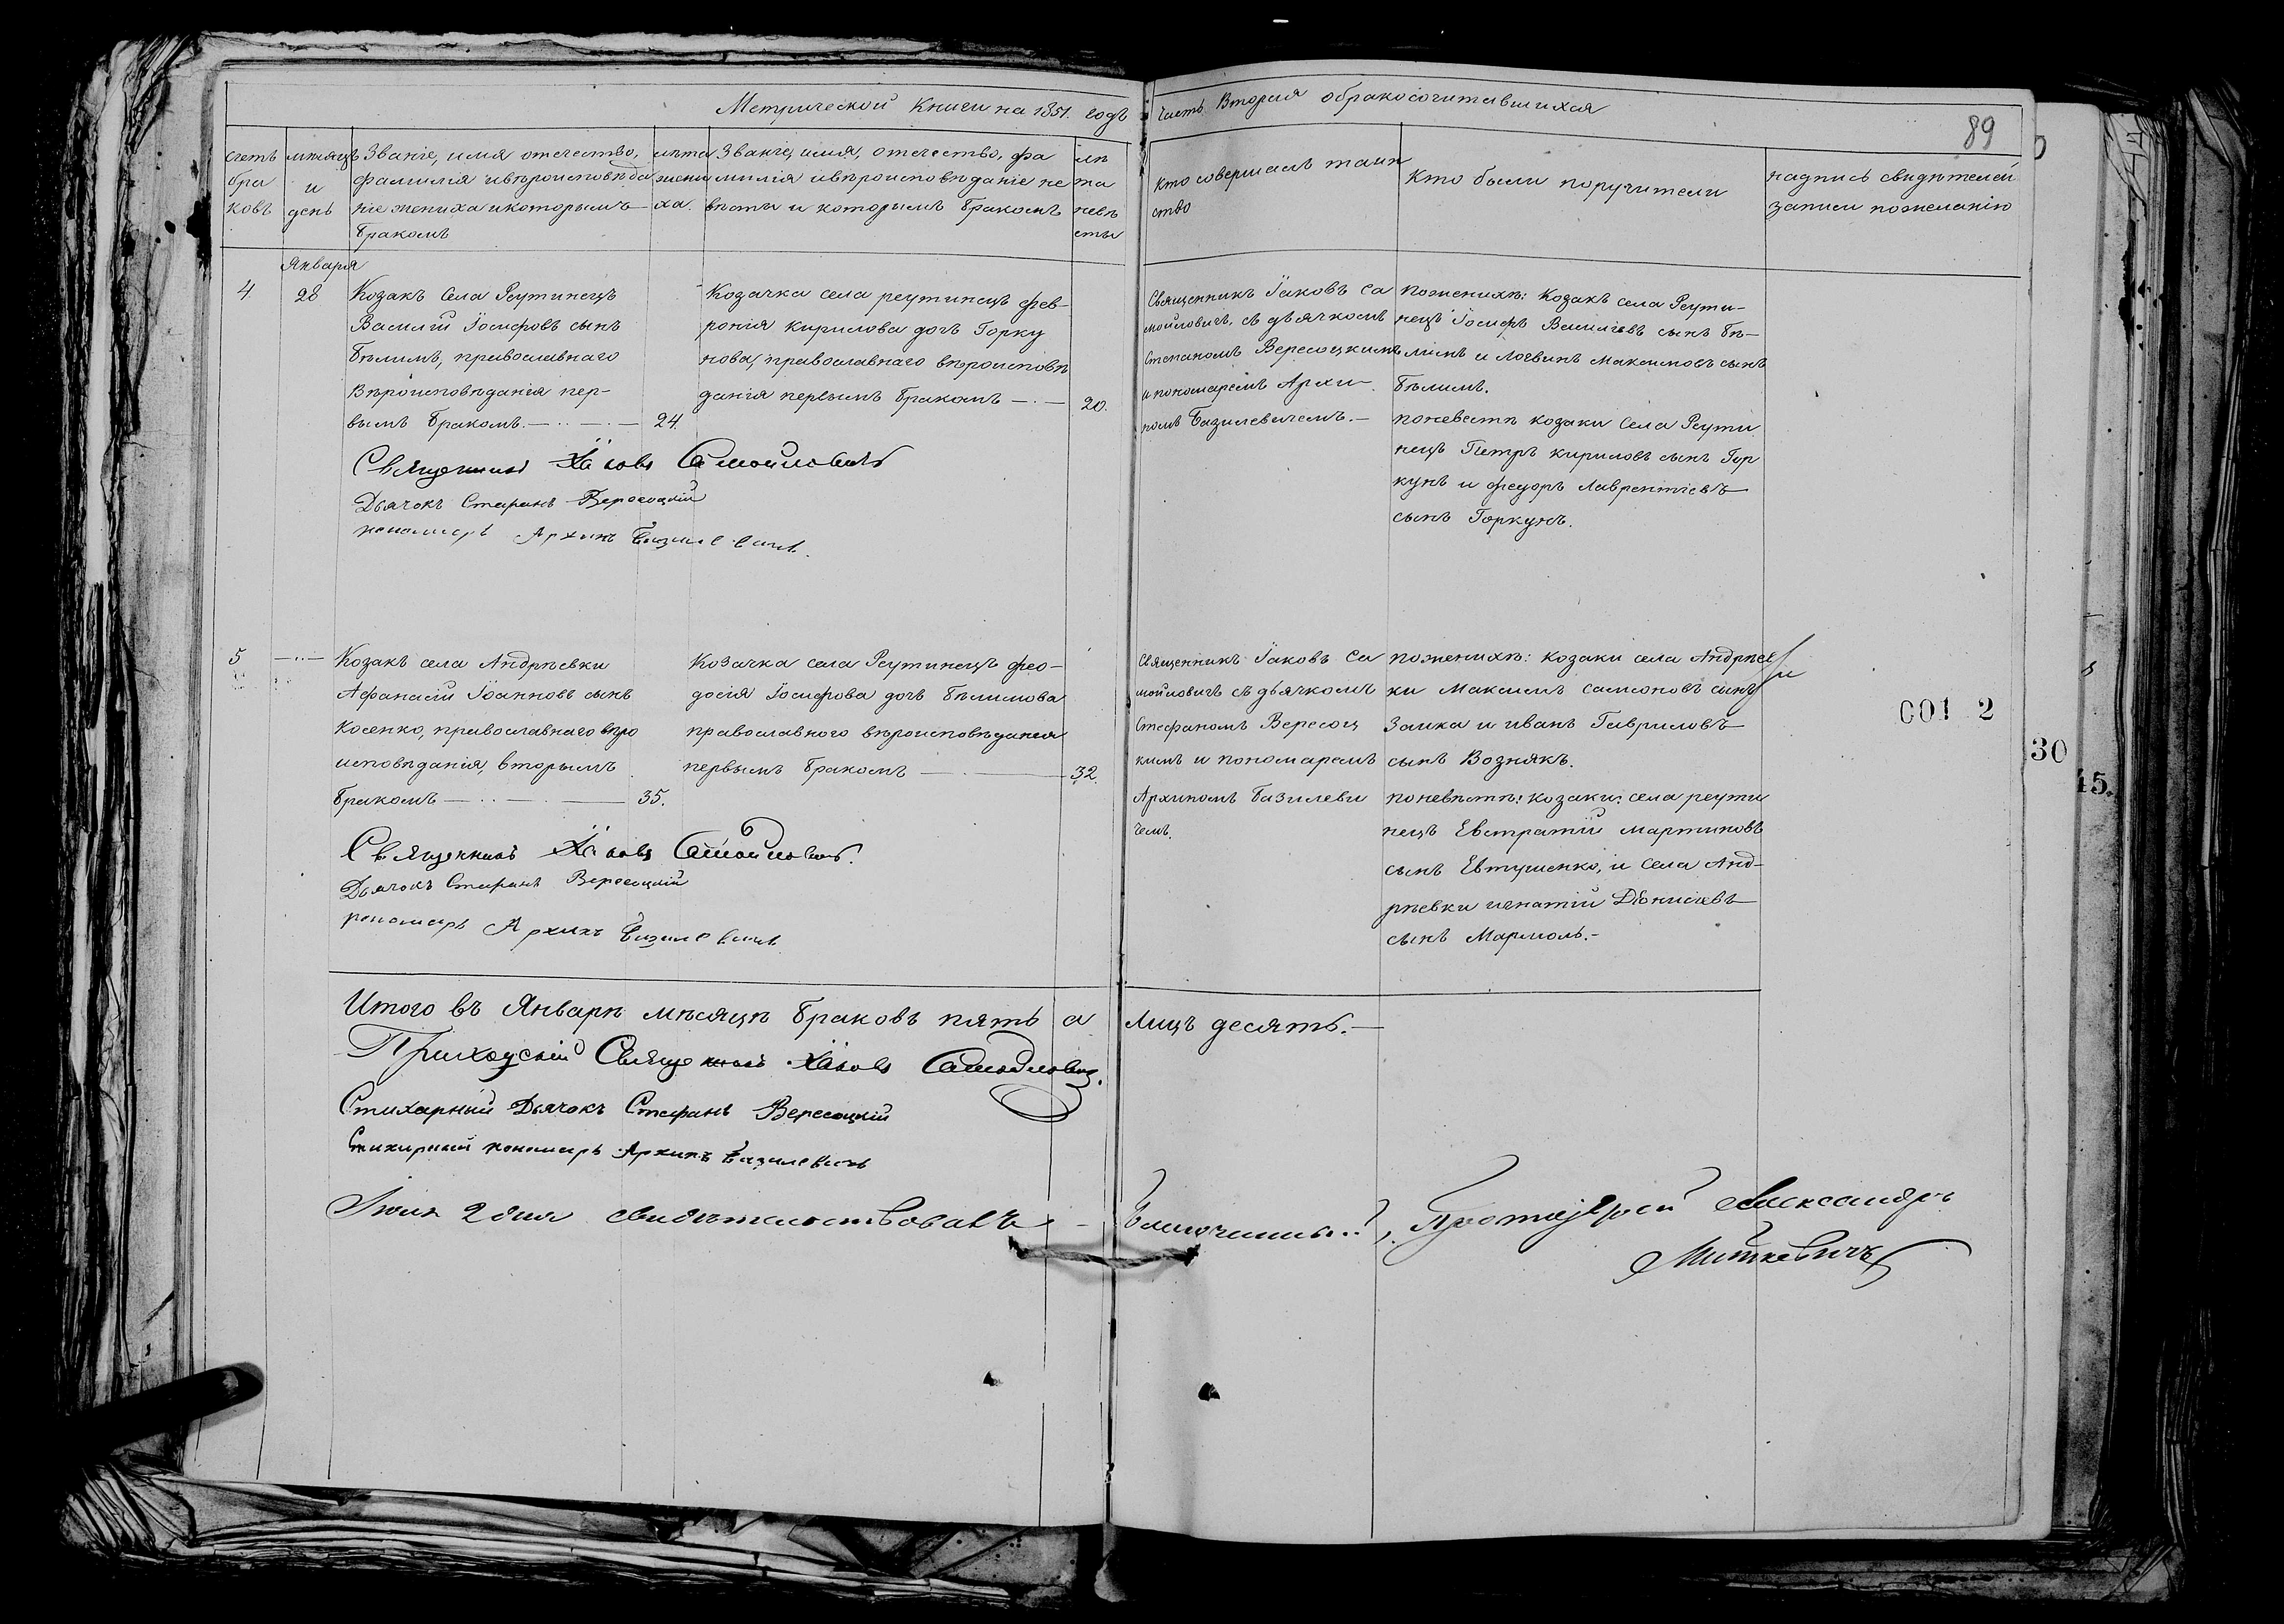 Метрической Книги на 1851. годъ часть Вторая обракосочитавшихся
89
счетъ браковъ
мѣсяцъ и день
Званіе, имя отечество,
фамилія ивѣроисповѣда
ніе жениха икоторымъ
бракомъ
лѣта
жени
ха.
Званіе, имя, отечество, фа
милія ивѣроисповѣданіе не
вѣсты и которымъ бракомъ
лѣ
та
невѣ
сты
Кто совершалъ таин
ство
Кто были поручители
надпись свидѣтелей
записи пожеланію
Января
4.
28
Козакъ Села Реутинецъ
Василій Іосифовъ сынъ
Бѣлимъ, православнаго
Вѣроисповѣданія пер-
вымъ бракомъ.
24.
Козачка села реутинецъ фев-
ронія кирилова дочъ Горку
нова, православнаго вѣроисповѣ
данія первымъ бракомъ
20.
Священникъ Іаковъ Са
мойловичъ, съ дьячкомъ
Степаномъ Вересоцкимъ
и пономаремъ Архи-
помъ Базилевичемъ.-
поженихѣ: Козакъ села Реути-
нецъ Іосифъ Василіевъ сынъ Бѣ-
лимъ и Логвинъ Максимовъ сынъ
Бѣлимъ.
поневестѣ козаки села Реути
нецъ Петръ кириловъ сынъ Гор
кунъ и федоръ Лаврентіевъ
сынъ Горкунъ.
Священникъ Іаковъ Самойловичъ
Дьячокъ Стефанъ Вересоцкій
пономаръ Архипъ Базилевичъ.
5
Козакъ села Андрѣевки
Афанасій Іоанновъ сынъ
Косенко, православнаго вѣро
исповѣданія, вторымъ
бракомъ
35.
Козачка села Реутинецъ фео-
досія Іосифова дочъ Бѣлимова
православного вѣроисповѣданія
первымъ бракомъ
32.
Священникъ Іаковъ Са
мойловичъ съ дьячкомъ
Стефаномъ Вересоц
кимъ и пономаремъ
Архипомъ Базилеви
чемъ.
поженихѣ: козаки села Андрѣев
ки Максимъ самсоновъ сынъ
Заика и иванъ Гавриловъ
сынъ Вознякъ.
поневѣстѣ: козаки: села реути
нецъ Евстратій мартиновъ
сынъ Евтушенко, и села Анд-
рѣевки игнатій Діонисіевъ
сынъ Мармоль.-
Священникъ Іаковъ Самойловичъ.
Дьячокъ Стефанъ Вересоцкій
пономарь Архипъ Базилевичъ
001 2
30
15.
Итого въ Январѣ мѣсяцѣ браковъ пять а лицъ десять.
Приходскій Священникъ Іаковъ Самойловичъ.
Стихарный Дьячокъ Стефанъ Вересоцкій
Стихарный пономаръ Архипъ Базилевичъ
Іюля 2 дня свидѣтельствовалъ Благочинный, Протоіерей Александръ
Миткевичъ